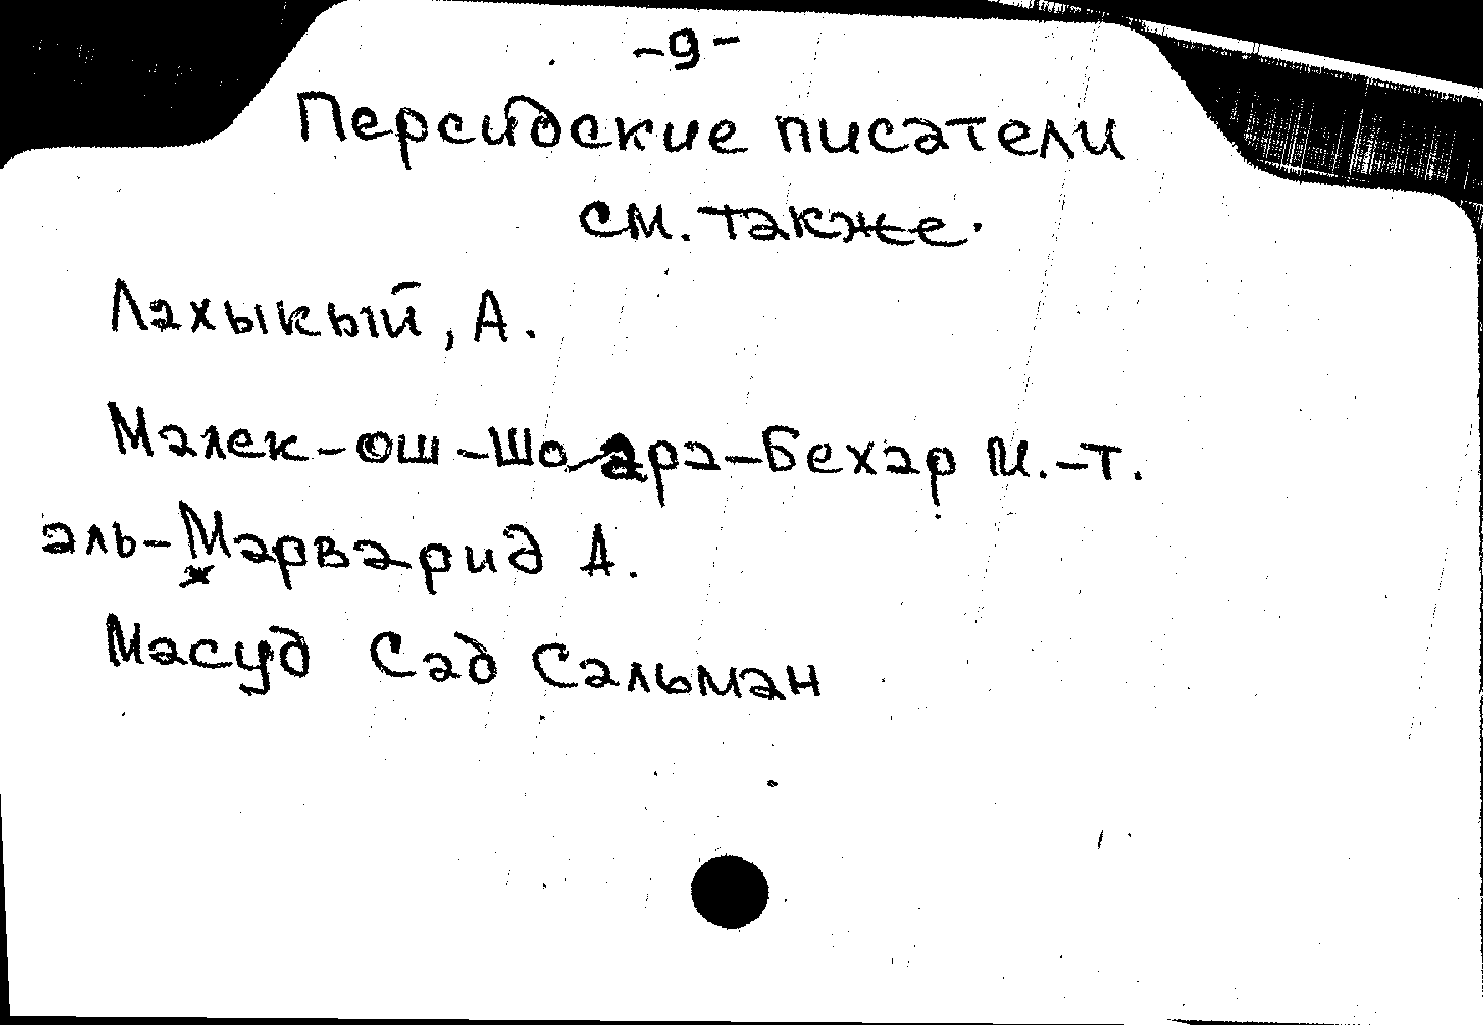 -9-
Персидские писатели
см. также.
Лахыкый, А.
Малек-ош-Шо-ара-Бехар М.-Т.
аль-Марварид А.
Масуд Сад Сальман